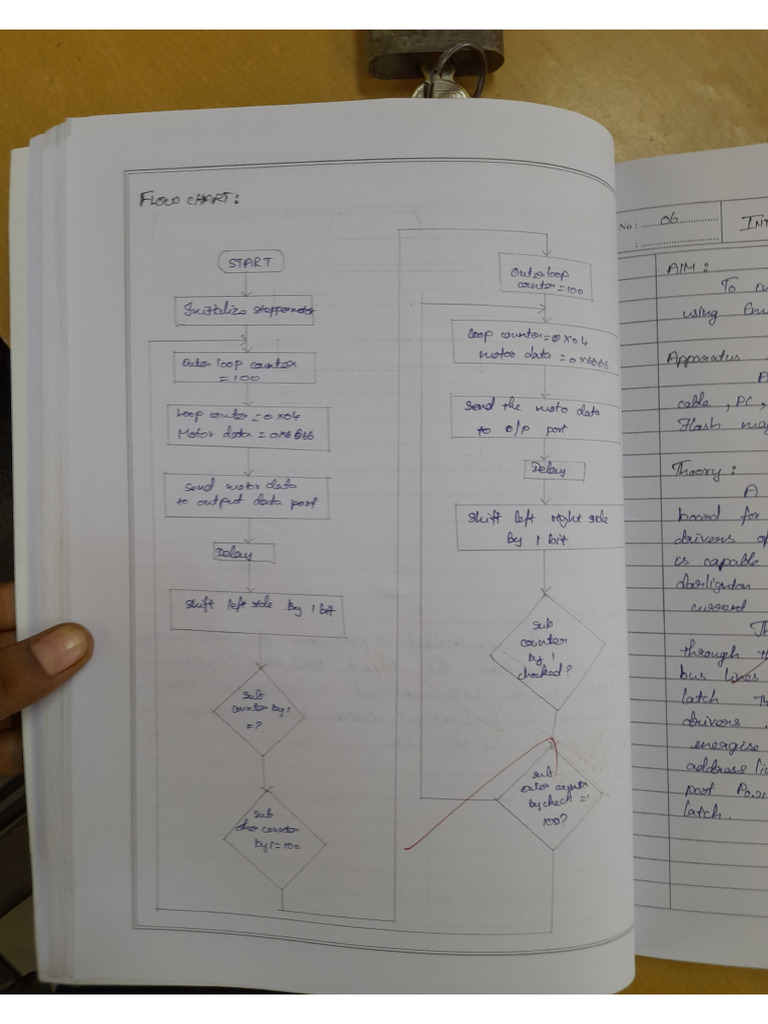 FLOW CHART:
START
Initialize steppermotor
Outer loop counter
= 100
Loop counter = 0x04
Motor data = 0x6666
Send motor data
to output data port
Delay
Shift left side by 1 bit
Sub
counter by 1
= ?
Sub
counter
by 1 = 100
Outerloop
counter = 100
Loop counter = 0x04
motor data = 0x6666
Send the moto data
to O/P port
Delay
Shift left right side
by 1 bit
Sub
counter
by 1
checked ?
Sub
outer counter
by check =
100?
No : 06
INT
AIM :
To
using
Apparatus
A
cable , PC ,
Flash mag
Theory :
A
board for
drivers of
is capable
darlignton
current
Th
through th
bus lines
latch Th
drivers .
energise
address li
port P0.2
latch .